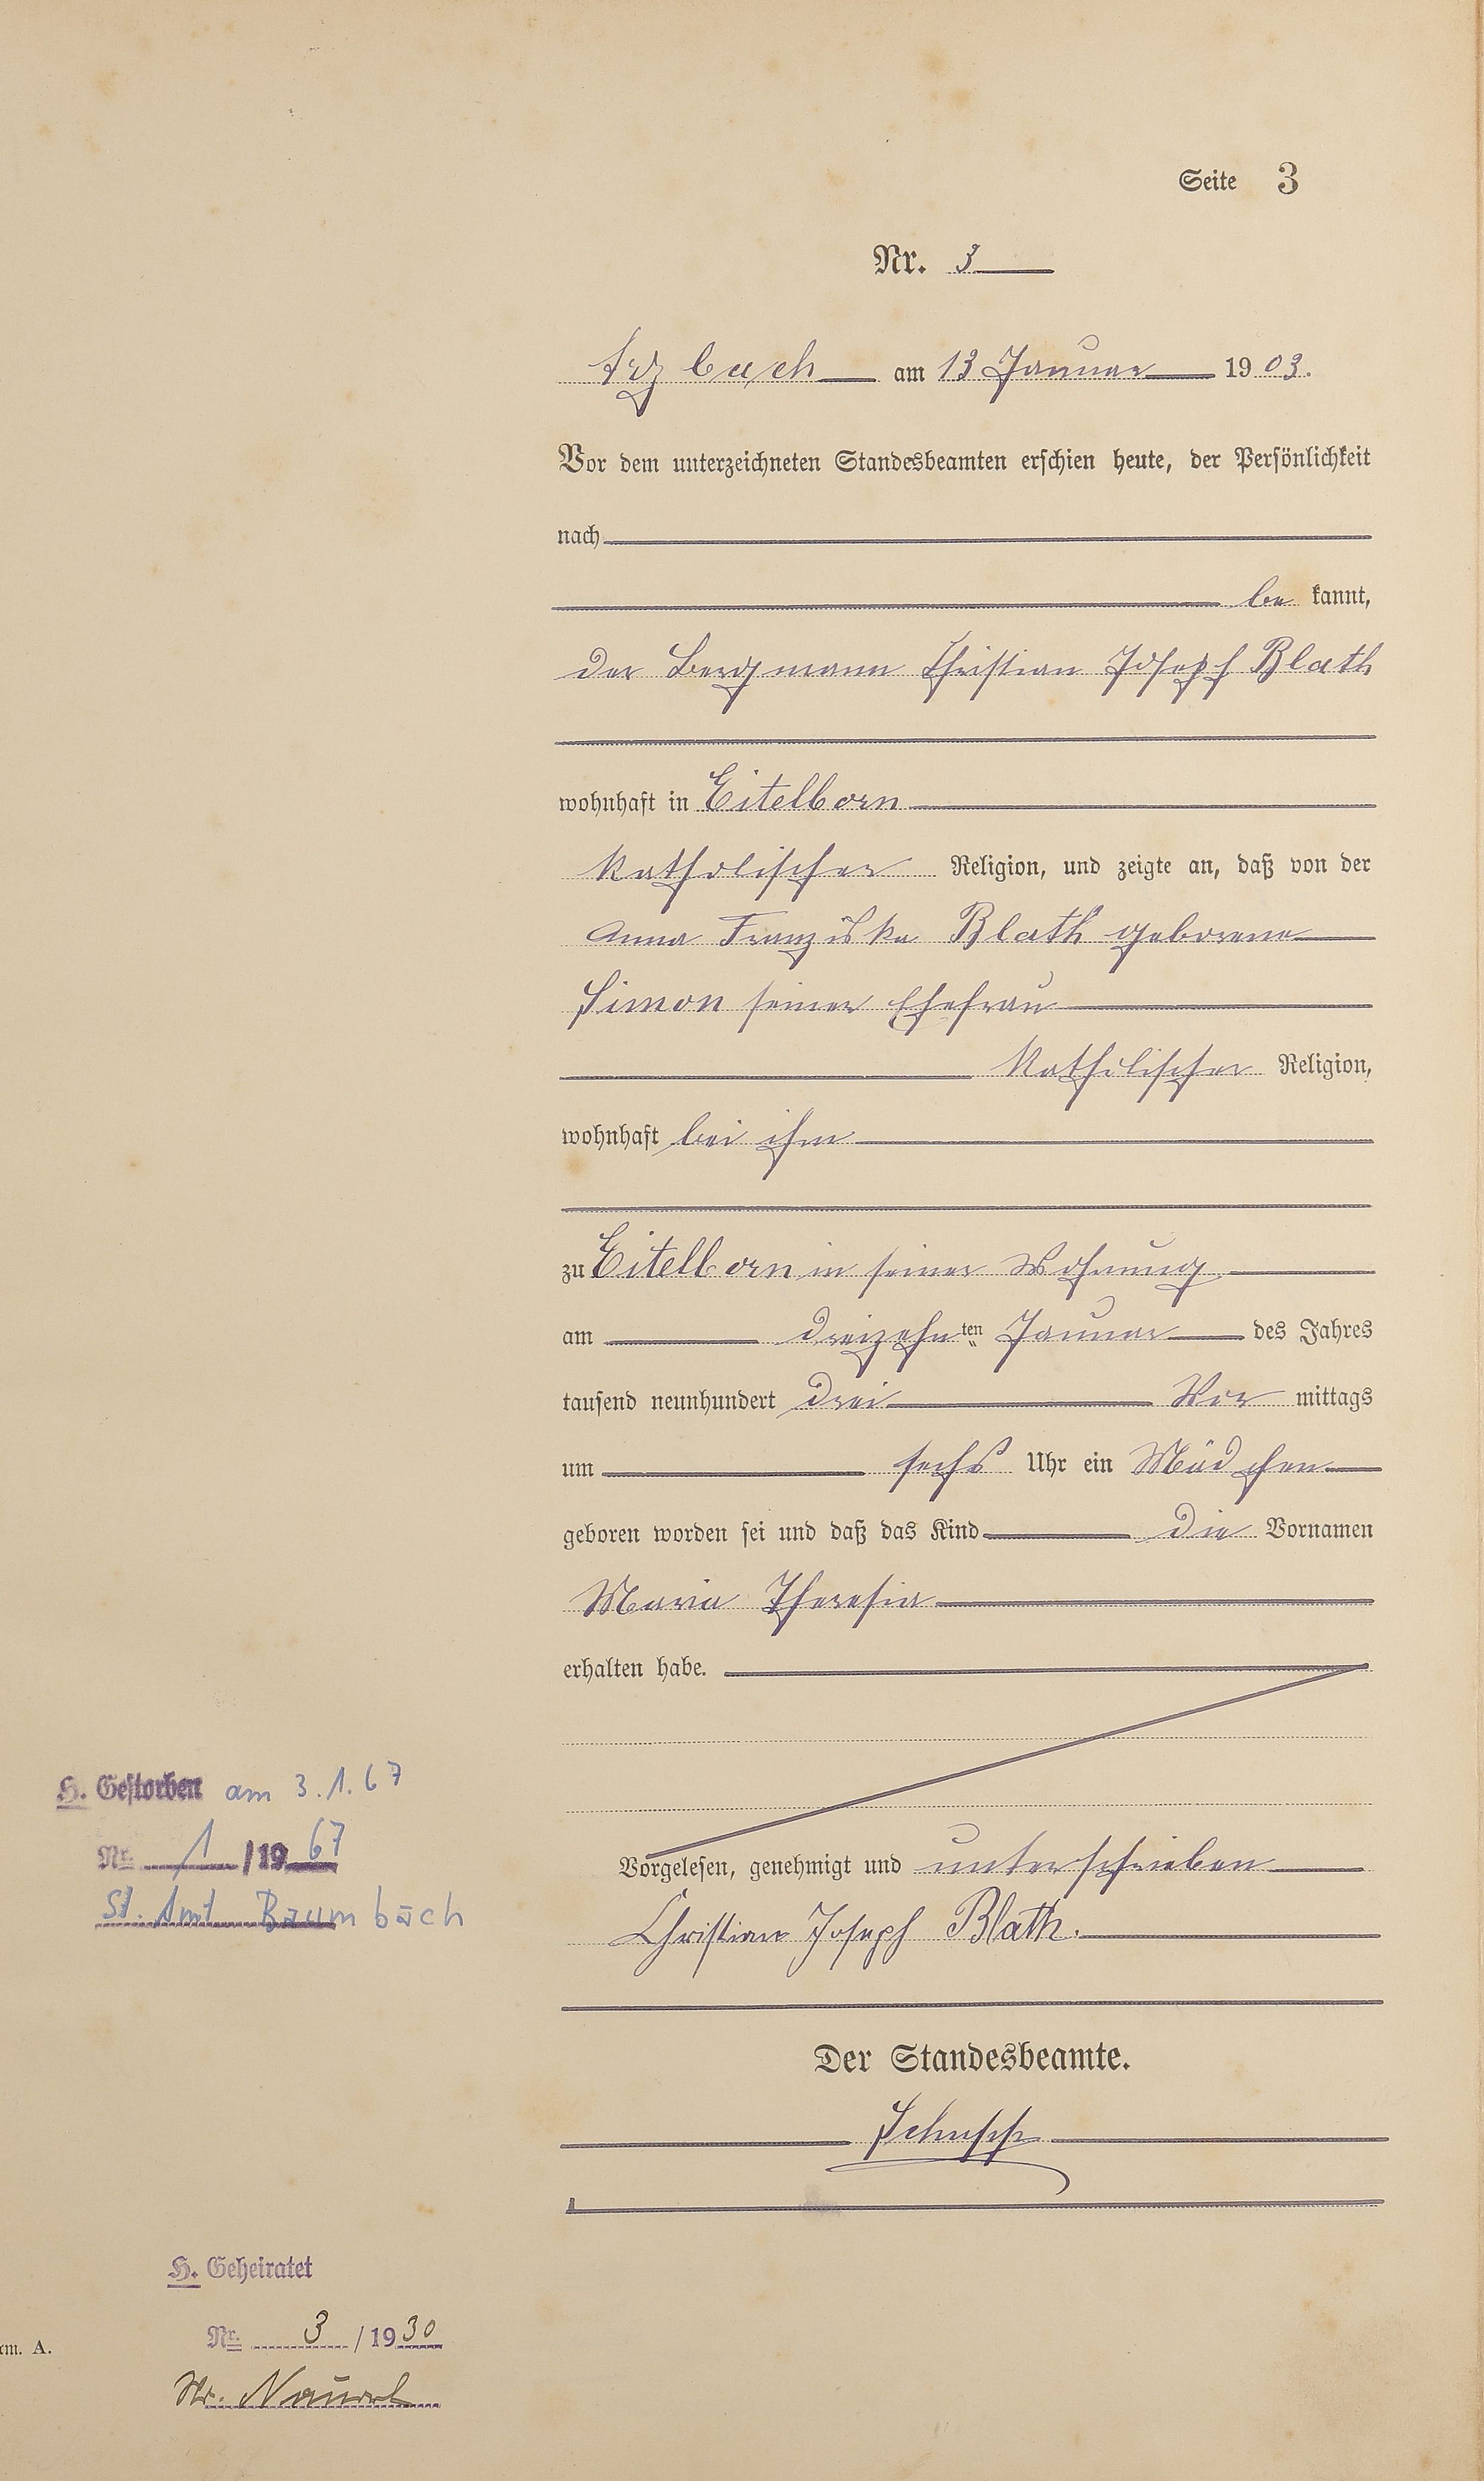 Seite 3
Nr. 3
Arzbach am 13 Januar 1903.
Vor dem unterzeichneten Standesbeamten erschien heute, der Persönlichkeit
nach
be kannt,
der Bergmann Christian Joseph Blath
wohnhaft in Eitelborn
katholischer Religion, und zeigte an, daß von der
Anna Franziska Blath geborene
Simon seiner Ehefrau
katholischer Religion,
wohnhaft bei ihm
zu Eitelborn in seiner Wohnung
am dreizehnten Januar des Jahres
tausend neunhundert drei Vor mittags
um sechs Uhr ein Mädchen
geboren worden sei und daß das Kind die Vornamen
Maria Theresia
erhalten habe.
Vorgelesen, genehmigt und unterschrieben
Christian Joseph Blath.
Der Standesbeamte.
H. Gestorben am 3.1.67
Nr. 1 /1967
St. Amt Baumbach
H. Geheiratet
Nr. 3 /1930
rm. A.